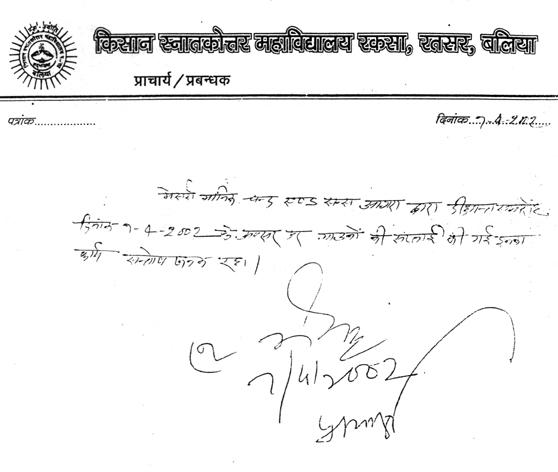 किसान स्नातकोत्तर महाविद्यालय रकसा, रतसर, बलिया
प्राचार्य / प्रबन्धक
पत्रांक.................... दिनांक...7-4-2002....
मेसर्स मानिक चन्द एण्ड सन्स आगरा द्वारा दीक्षान्त समारोह
दिनांक 7-4-2002 के अवसर पर गाउनों की सप्लाई की गई इनका
कार्य सन्तोष जनक रहा।
7/4/2002